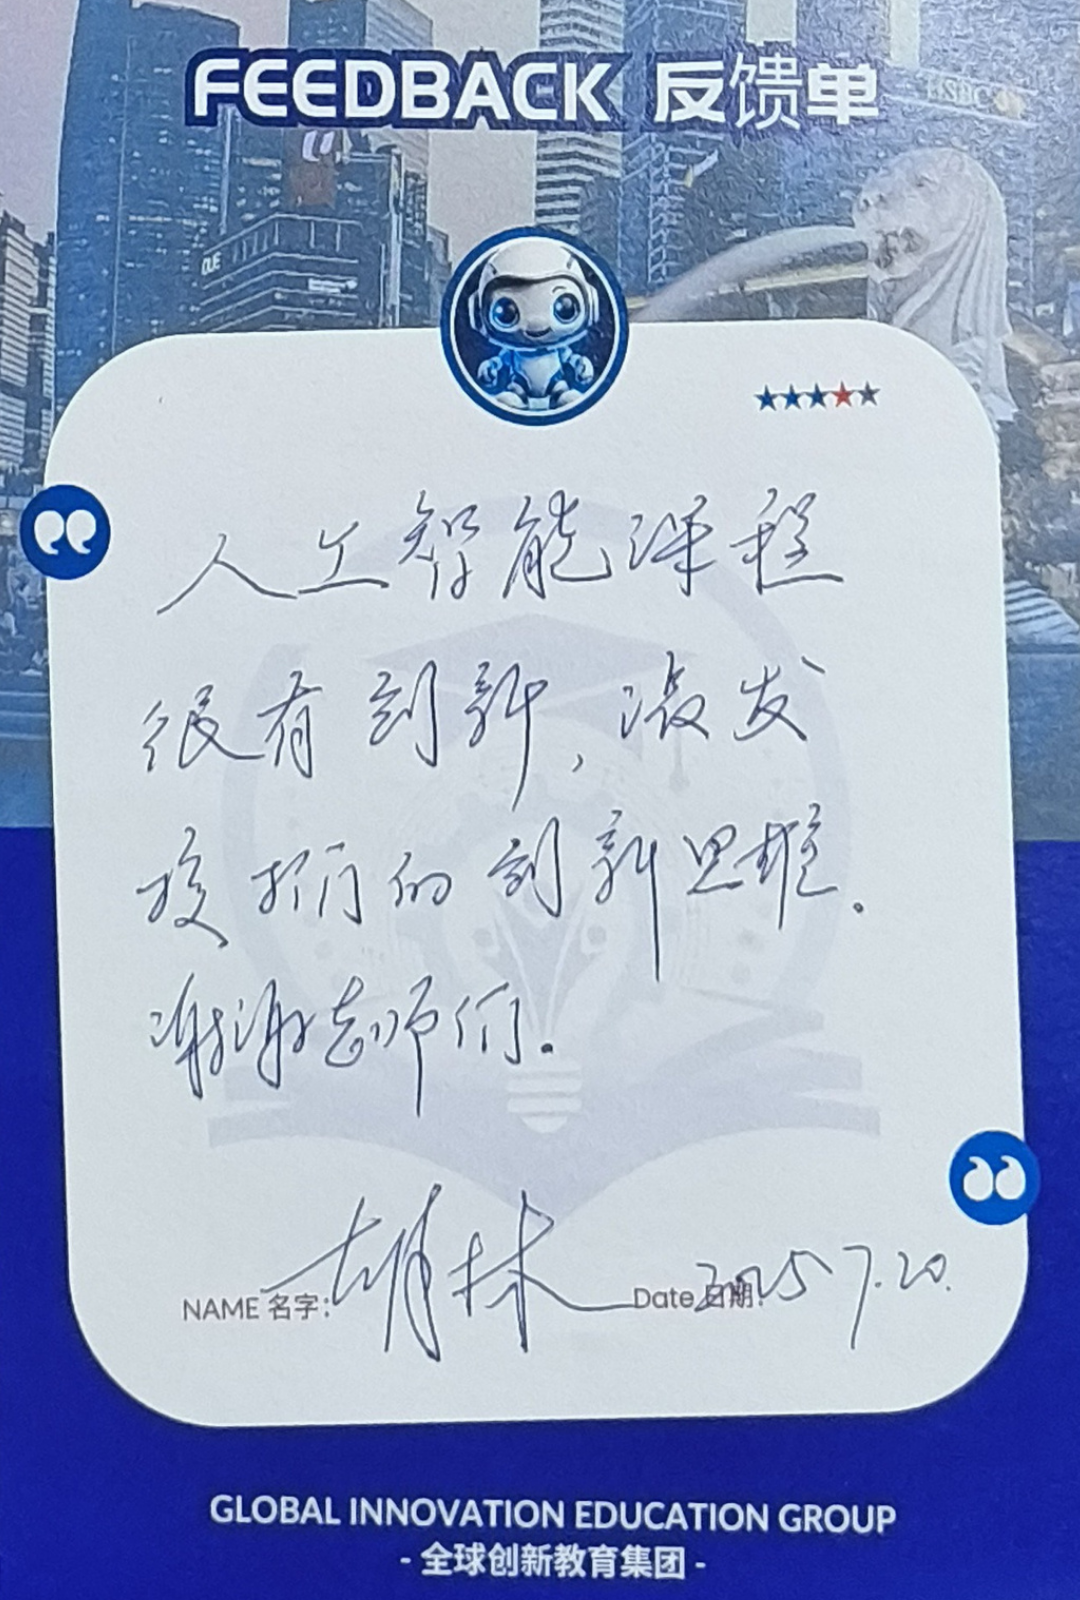 FEEDBACK 反馈单
HSBC
OUE
人工智能课程
很有创新,激发
孩子们的创新思维.
谢谢老师们.
NAME 名字: 胡林 Date 日期: 2025 7.20.
GLOBAL INNOVATION EDUCATION GROUP
- 全球创新教育集团 -